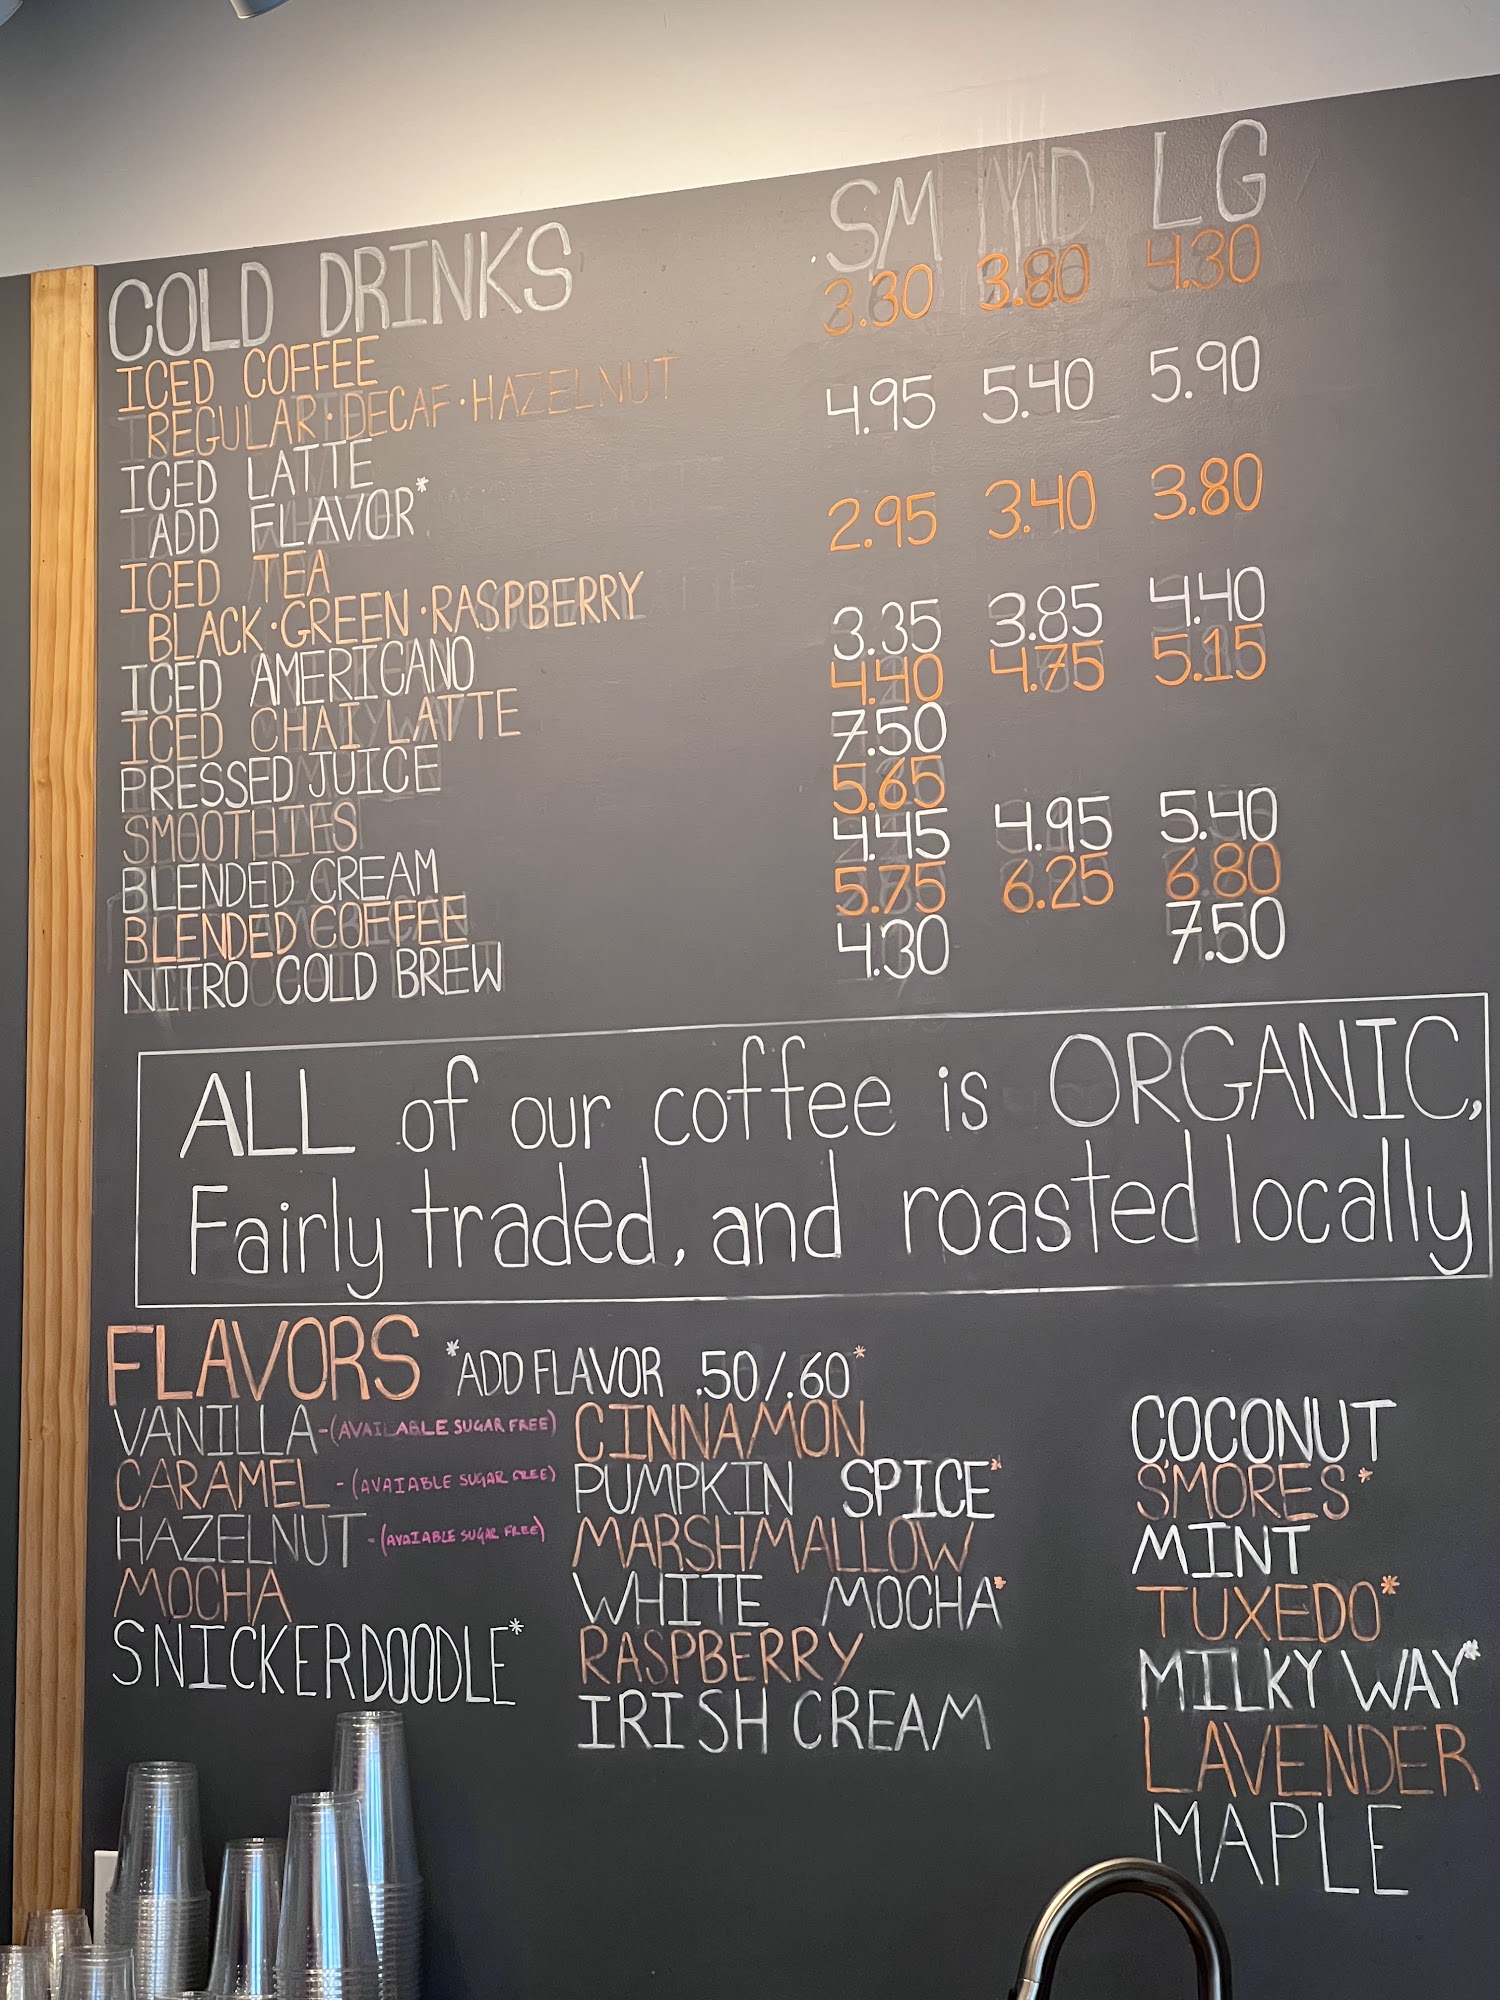 COLD DRINKS SM MD LG
ICED COFFEE 3.30 3.80 4.30
REGULAR · DECAF · HAZELNUT
ICED LATTE 4.95 5.40 5.90
ADD FLAVOR*
ICED TEA 2.95 3.40 3.80
BLACK · GREEN · RASPBERRY
ICED AMERICANO 3.35 3.85 4.40
ICED CHAI LATTE 4.40 4.75 5.15
PRESSED JUICE 7.50
SMOOTHIES 5.65
BLENDED CREAM 4.45 4.95 5.40
BLENDED COFFEE 5.75 6.25 6.80
NITRO COLD BREW 4.30 7.50
ALL of our coffee is ORGANIC,
Fairly traded, and roasted locally
FLAVORS *ADD FLAVOR .50/.60*
VANILLA -(AVAILABLE SUGAR FREE)
CARAMEL -(AVAIABLE SUGAR FREE)
HAZELNUT -(AVAIABLE SUGAR FREE)
MOCHA
SNICKERDOODLE*
CINNAMON
PUMPKIN SPICE*
MARSHMALLOW
WHITE MOCHA*
RASPBERRY
IRISH CREAM
COCONUT
S'MORES*
MINT
TUXEDO*
MILKY WAY*
LAVENDER
MAPLE